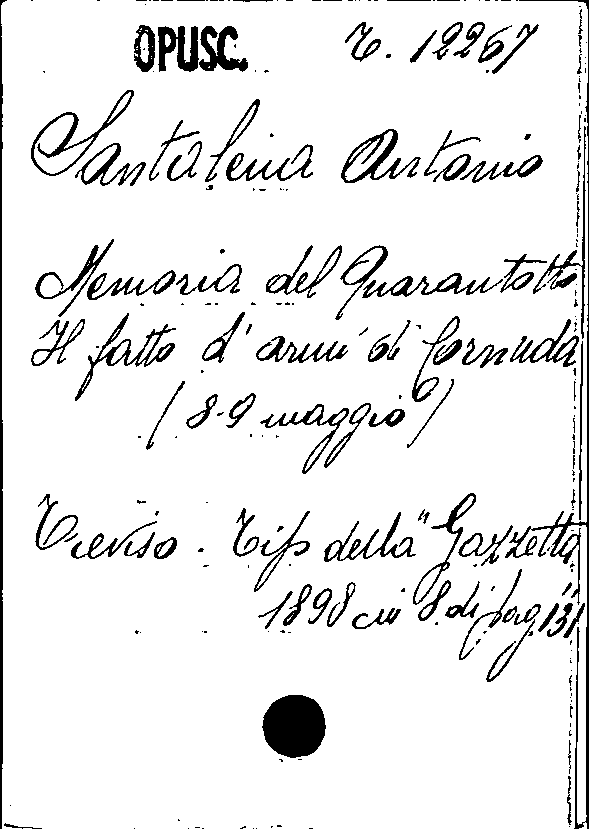 OPUSC. T. 12267
Santalena Antonio
Memoria del Quarantotto
Il fatto d'armi di Cornuda
(8-9 maggio)
Treviso. Tip della "Gazzetta"
1898 in 8. di pag. 131